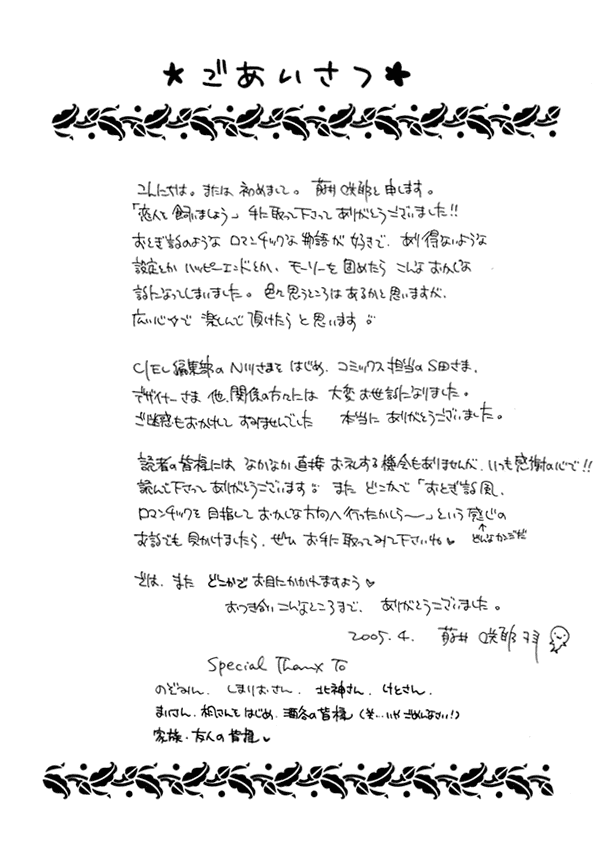 ★ごあいさつ✽
こんにちは。または 初めまして。 藤井咲耶と申します。
「恋人を飼いましょう」 手に取って下さって ありがとうございました!!
おとぎ話のような ロマンチックな物語が 好きで、 あり得ないような
設定とか ハッピーエンドとか、 モーソーを 固めたら こんな おかしな
話になってしまいました。 色々思うところは あるかと思いますが、
広い心で 楽しんで頂けたら と思います♪
CIEL編集部の N川さまを はじめ、 コミックス担当のS田さま、
デザイナーさま 他、関係の方々には 大変お世話になりました。
ご迷惑もおかけして すみませんでした 本当に ありがとうございました。
読者の皆様には なかなか 直接 お礼する機会もありませんが、いつも感謝の心で!!
読んで下さって ありがとうございます♪ また どこかで「おとぎ話風、
ロマンチックを 目指して おかしな方向へ行ったかしら〜」という 感じの
お話でも 見かけましたら、 ぜひ お手に取ってみて下さいね♥ ↑どんなカンジだ
では、また どこかで お目にかかれますよう♥
おつき合い こんなところまで、 ありがとうございました。
2005.4. 藤井 咲耶
Special Thanx To
のぞみん、 しまりおさん、 北神さん、 けとさん、
まいさん、相さんを はじめ、酒冬の皆様 (そ…いや ごめんなさい!)
家族・友人の皆様♥